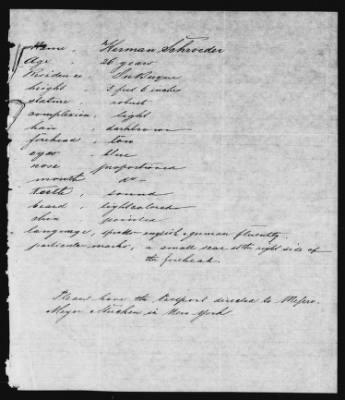 Name . Herman Schroeder
Age . 26 years
Residence DuBuque
height . 5 feet 6 inches
stature . robust
complexion, light
hair . darkbrown
forehead . low
eyes . blue
nose proportioned
mouth do
teeth . sound
beard . lightcolored
chin pointed
language, speaks english & german fluently.
particular marks, a small scar at the right side of
the forehead.
Please have the Passport directed to Messrs.
Meyer & in New York